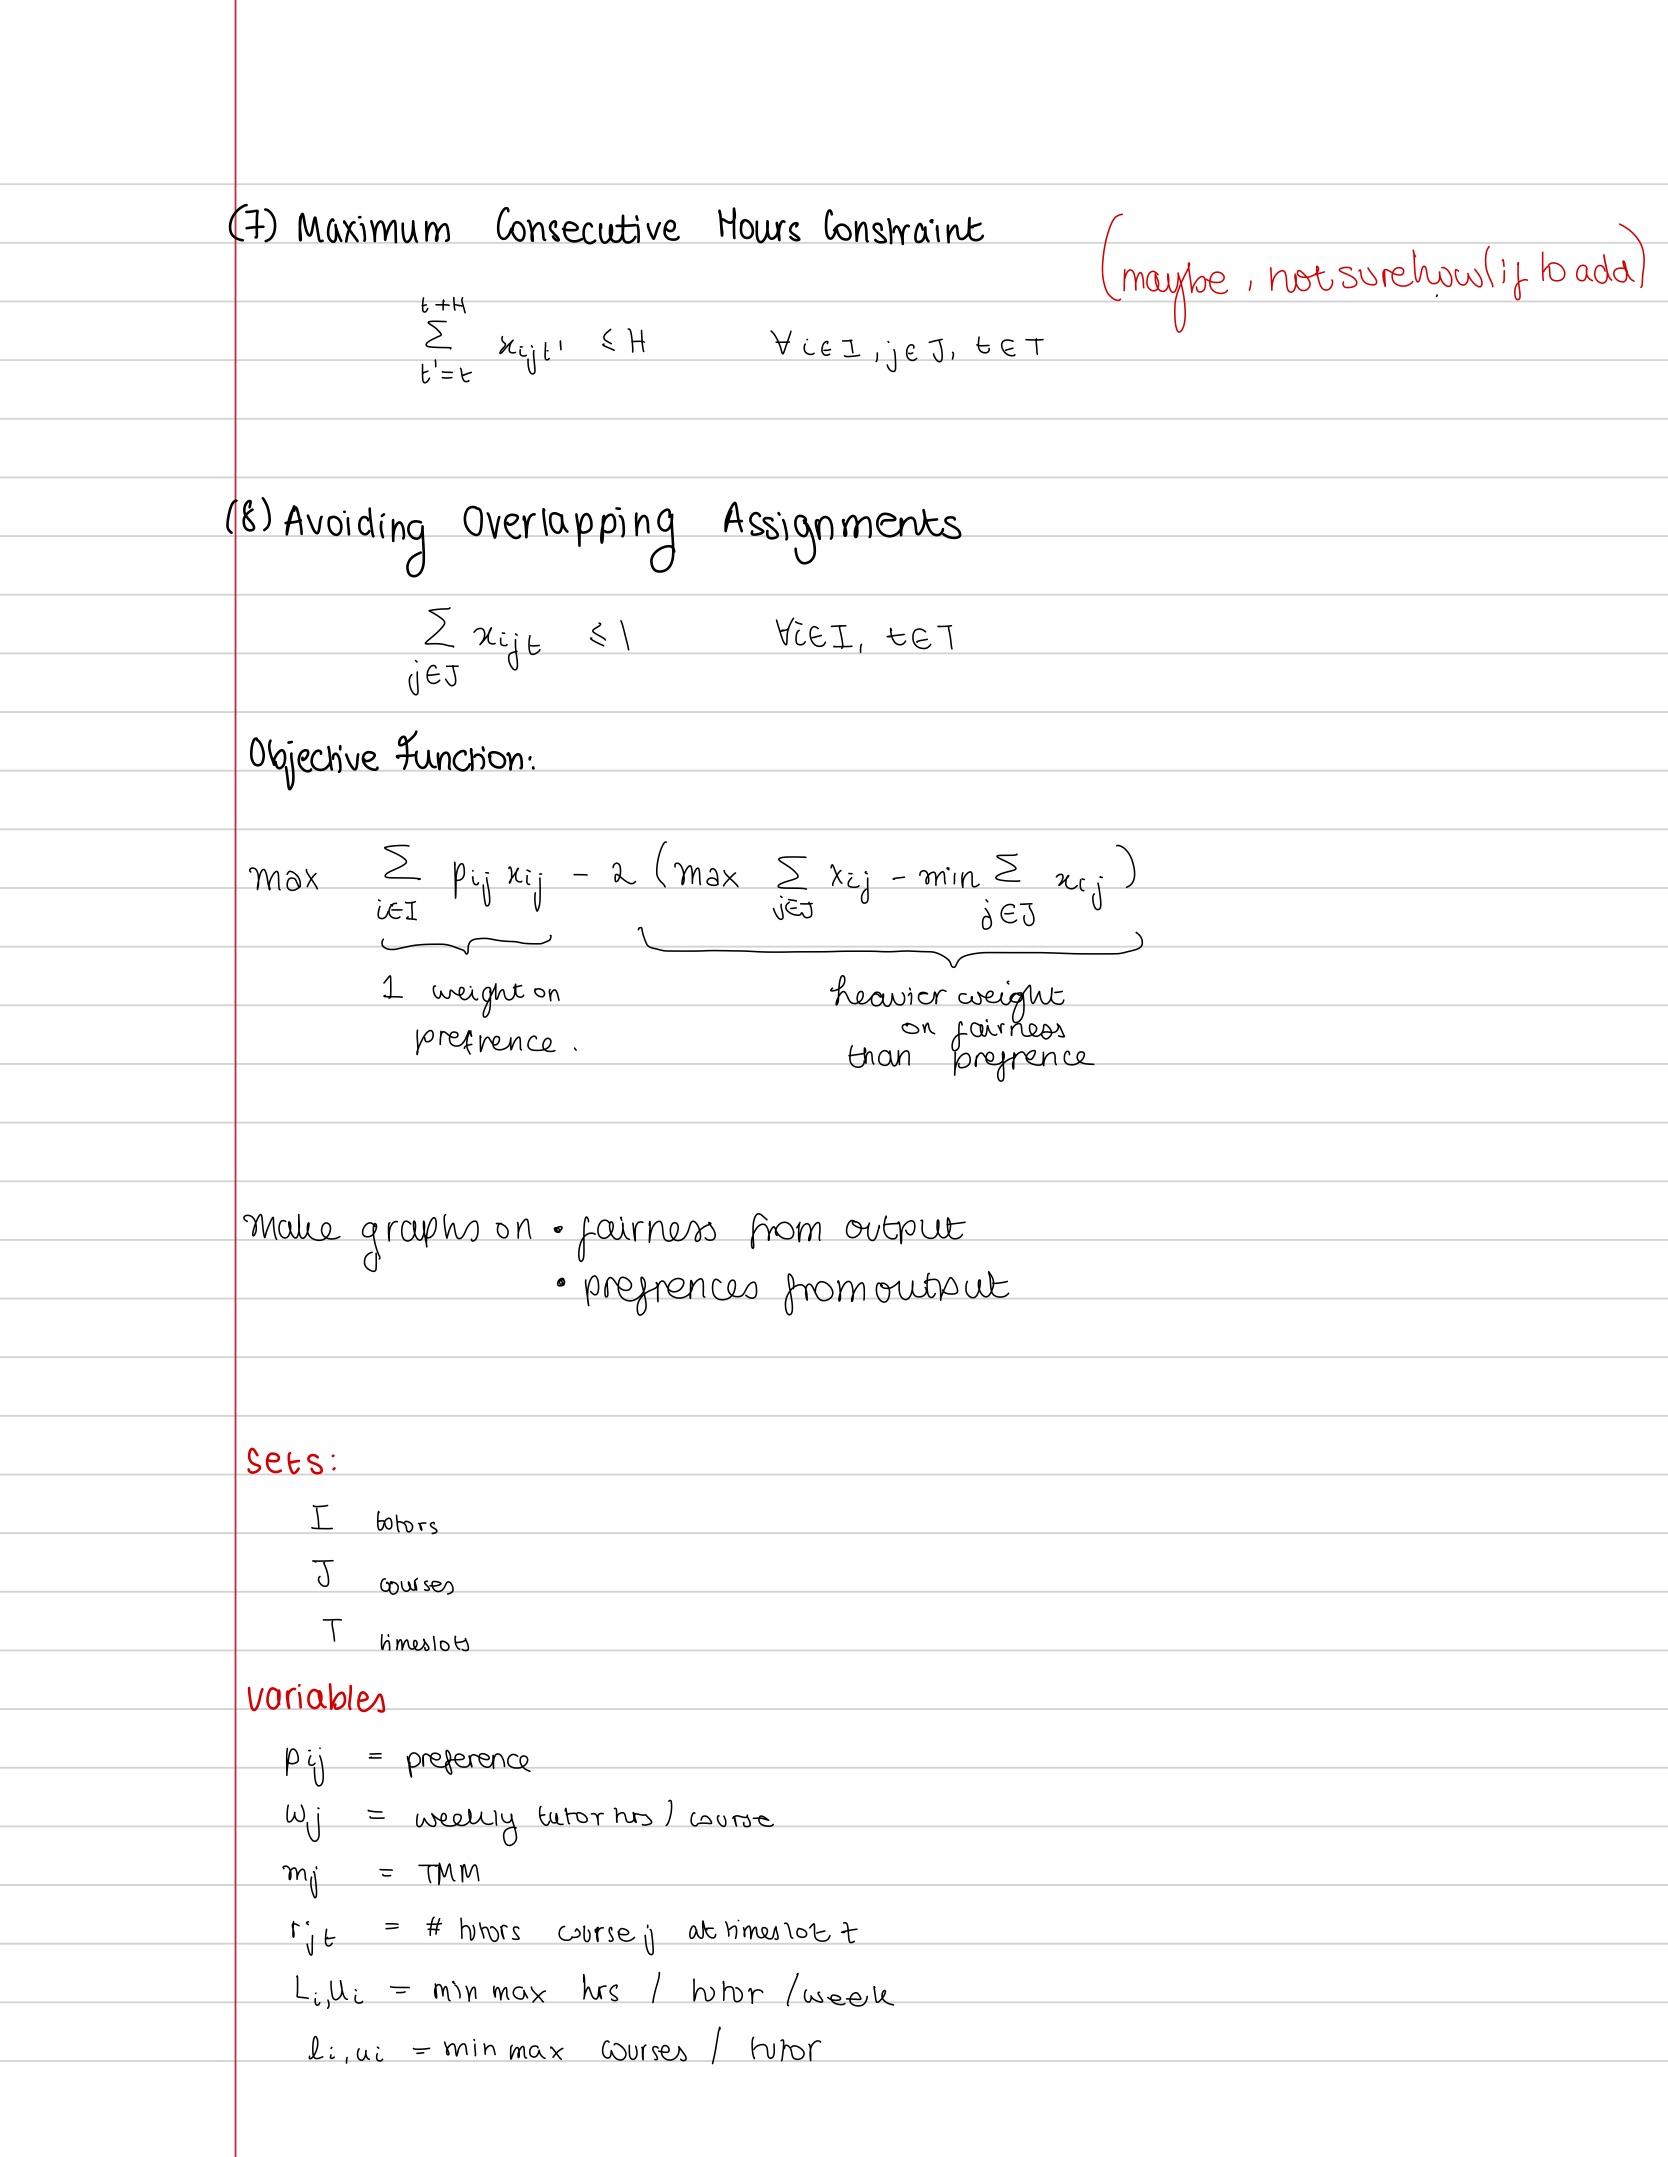 (7) Maximum Consecutive Hours Constraint
(maybe, not sure how/if to add)
t+H
∑ xijt' ≤ H ∀ i∈I, j∈J, t∈T
t'=t
(8) Avoiding Overlapping Assignments
∑ xijt ≤ 1 ∀i∈I, t∈T
j∈J
Objective Function:
max ∑ pij xij - 2 (max ∑ xij - min ∑ xij)
i∈I j∈J j∈J
1 weight on
prefrence.
heavier weight
on fairness
than prefrence
Make graphs on • fairness from output
• prefrences from output
Sets:
I tutors
J courses
T timeslots
variables
pij = preference
wj = weekly tutor hrs / course
mj = TMM
rjt = # tutors course j at timeslot t
Li,Ui = min max hrs / tutor / week
li,ui = min max courses / tutor